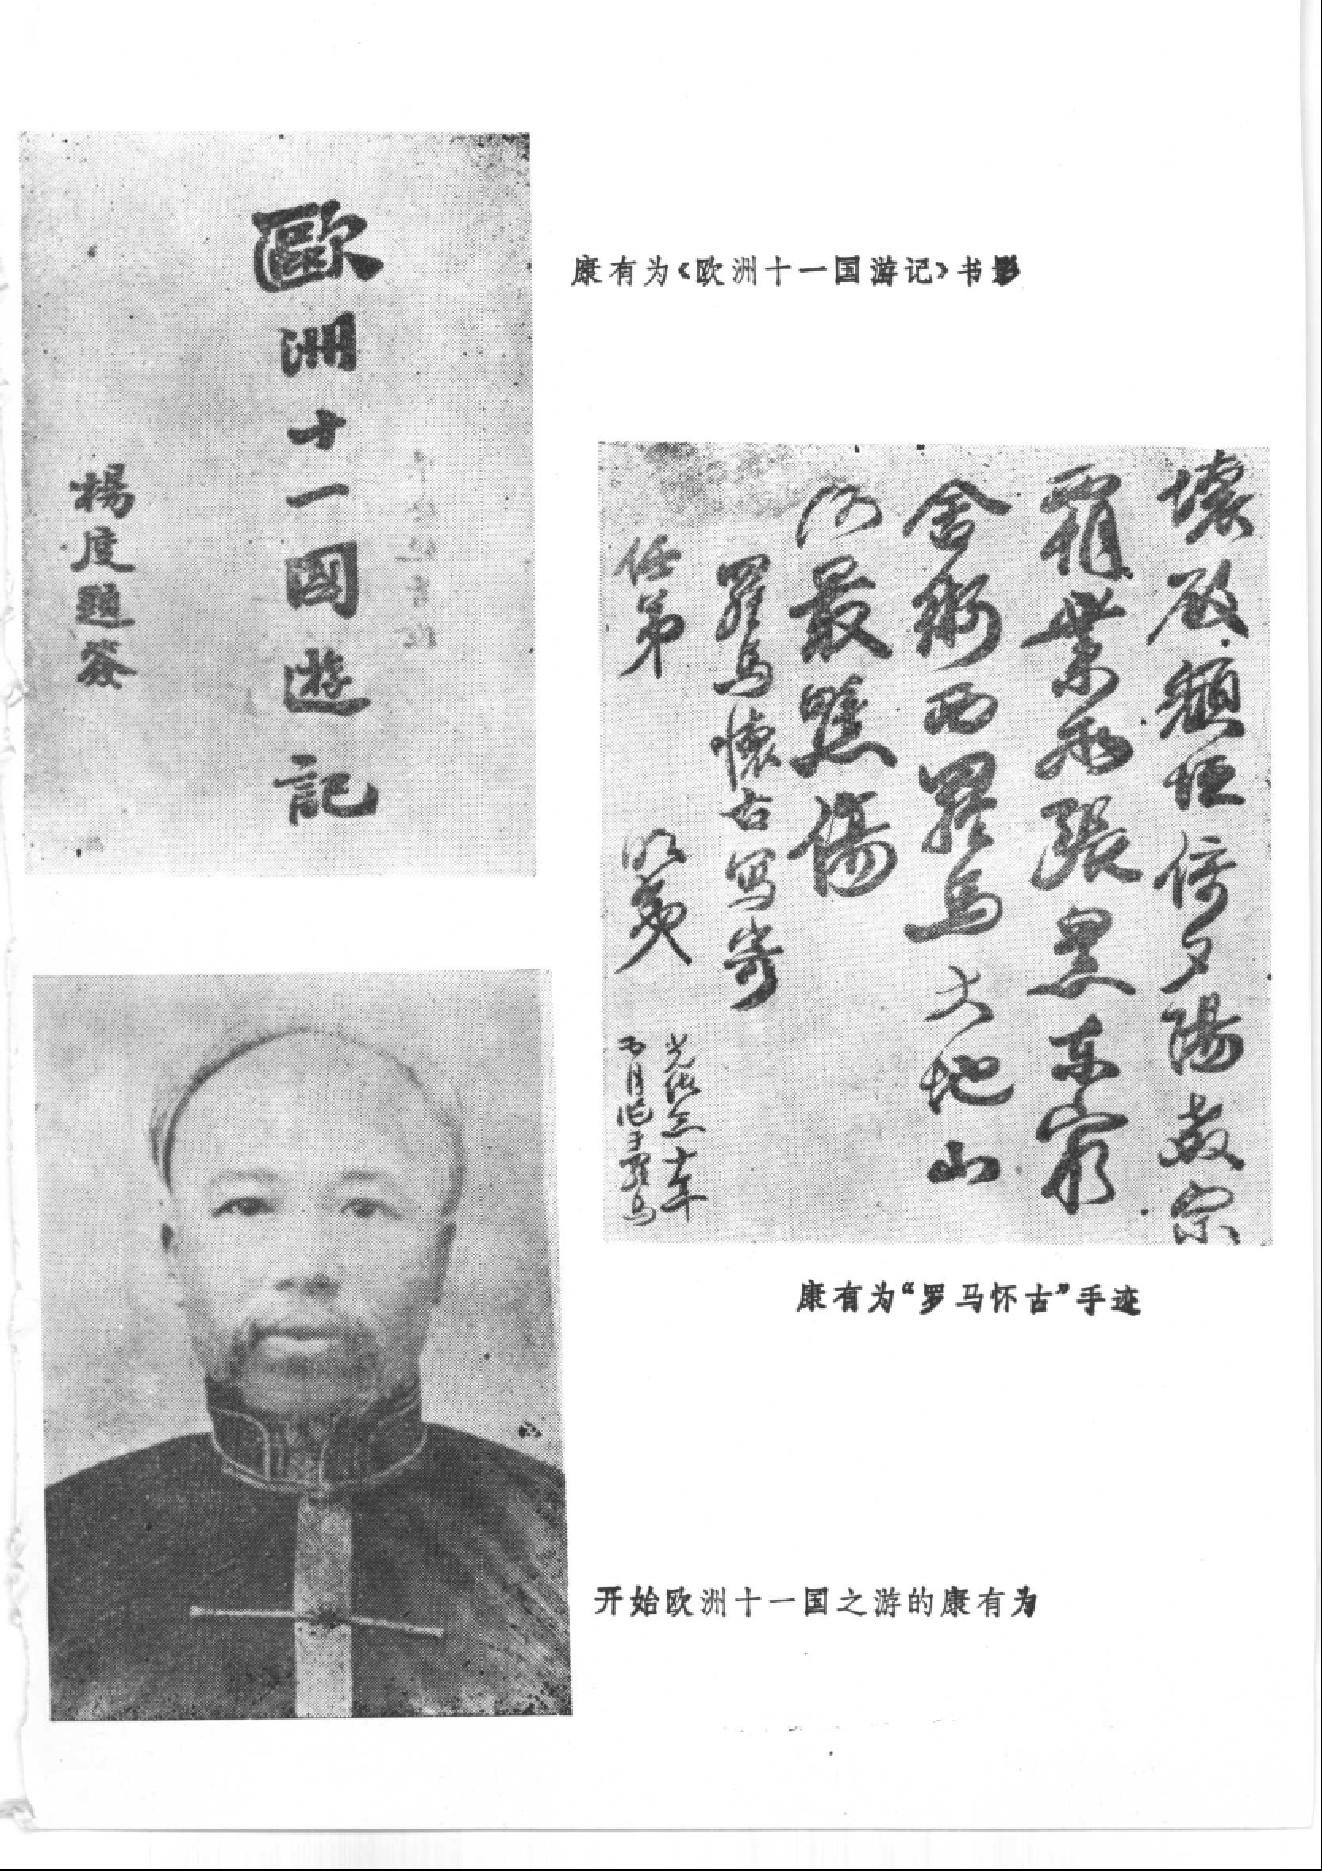 歐洲十一國遊記
楊度題簽
康有为《欧洲十一国游记》书影
壞殿頹垣倚夕陽教宗
霸業雨張皇东窮
金術西羅馬大地山
河最慘傷
羅馬懷古写寄
任弟
明夷
光緒三十年
五月作于羅馬
康有为“罗马怀古”手迹
开始欧洲十一国之游的康有为